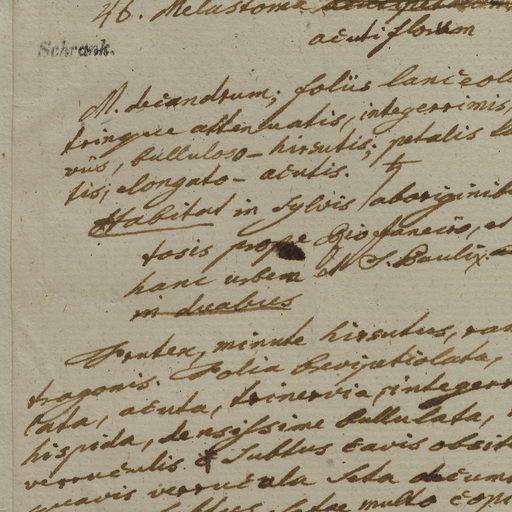 46. Melastoma
acutiflorum
Schrank.
M. decandrum; foliis lanceol
trinque attenuatis, integerrimis,
viis, bulluloso-hirsutis; petalis
tis, elongato-acutis. ♄
Habitat in sylvis aboriginib
tosis prope Rio Janeiro, et
hanc urbem et S. Pauli
in duabus
Frutex, minute hirsutus, ram
tragonis. Folia brevipetiolata,
lata, acuta, trinervia, integerr
hispida, densissime bullulata,
verruculis & subtus cavis obsit
verrucula seta
setae multo copi